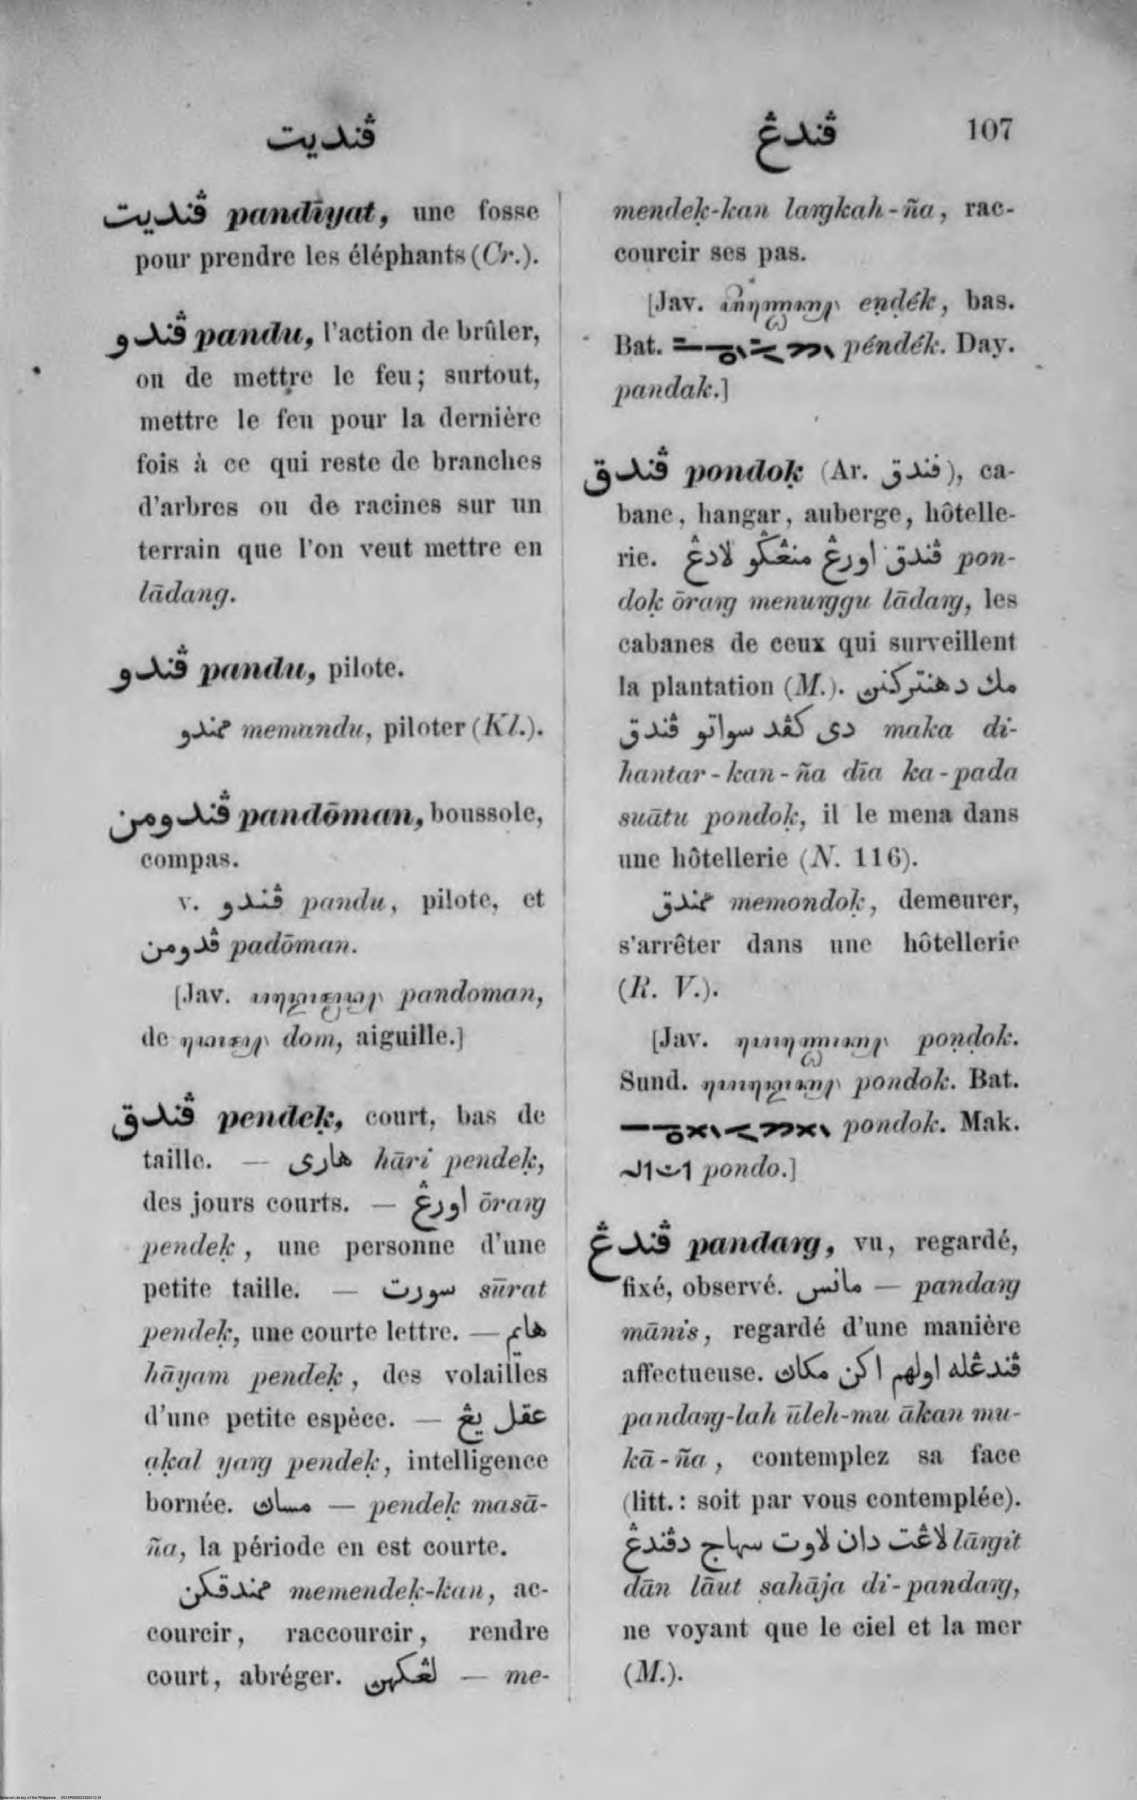 ڤنديت
ڤندڠ
107
ڤنديت pandīyat, une fosse
pour prendre les éléphants (Cr.).
ڤندو pandu, l'action de brûler,
ou de mettre le feu; surtout,
mettre le feu pour la dernière
fois à ce qui reste de branches
d'arbres ou de racines sur un
terrain que l'on veut mettre en
lādang.
ڤندو pandu, pilote.
ممندو memandu, piloter (Kl.).
ڤندومن pandōman, boussole,
compas.
v. ڤندو pandu, pilote, et
ڤدومن padōman.
[Jav. pandoman,
de dom, aiguille.]
ڤندق pendeḳ, court, bas de
taille. — هاري hāri pendeḳ,
des jours courts. — اورڠ ōraṅg
pendeḳ, une personne d'une
petite taille. — سورت sūrat
pendeḳ, une courte lettre. — هايم
hāyam pendeḳ, des volailles
d'une petite espèce. — عقل يڠ
aḳal yaṅg pendeḳ, intelligence
bornée. مساڽ — pendeḳ masā-
ña, la période en est courte.
ممندقکن memendeḳ-kan, ac-
courcir, raccourcir, rendre
court, abréger. لڠکهڽ — me-
mendeḳ-kan laṅgkah-ña, rac-
courcir ses pas.
[Jav. enḍék, bas.
Bat. péndék. Day.
pandak.]
ڤندق pondoḳ (Ar. فندق), ca-
bane, hangar, auberge, hôtelle-
rie. ڤندق اورڠ منڠݢو لادڠ pon-
doḳ ōraṅg menuṅggu lādaṅg, les
cabanes de ceux qui surveillent
la plantation (M.). مك دهنترکنڽ
دي کڤد سواتو ڤندق maka di-
hantar-kan-ña dīa ka-pada
suātu pondoḳ, il le mena dans
une hôtellerie (N. 116).
ممندق memondoḳ, demeurer,
s'arrêter dans une hôtellerie
(R. V.).
[Jav. ponḍok.
Sund. pondok. Bat.
pondok. Mak.
pondo.]
ڤندڠ pandaṅg, vu, regardé,
fixé, observé. مانس — pandaṅg
mānis, regardé d'une manière
affectueuse. ڤندڠله اولهم اکن مکاڽ
pandaṅg-lah ūleh-mu ākan mu-
kā-ña, contemplez sa face
(litt.: soit par vous contemplée).
لاڠت دان لاوت سهاج دڤندڠ lāṅgit
dān lāut sahāja di-pandaṅg,
ne voyant que le ciel et la mer
(M.).